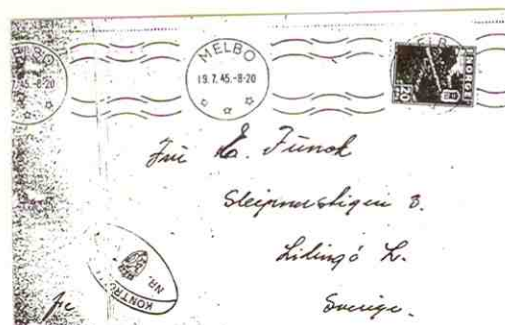 MELBO
19.7.45.-8-20
MELBO
45.-8-20
NORGE
20
Fru E. Funck
Sleipnerstigen 3.
Lidingö 2.
Sverige.
KONTR.
NR